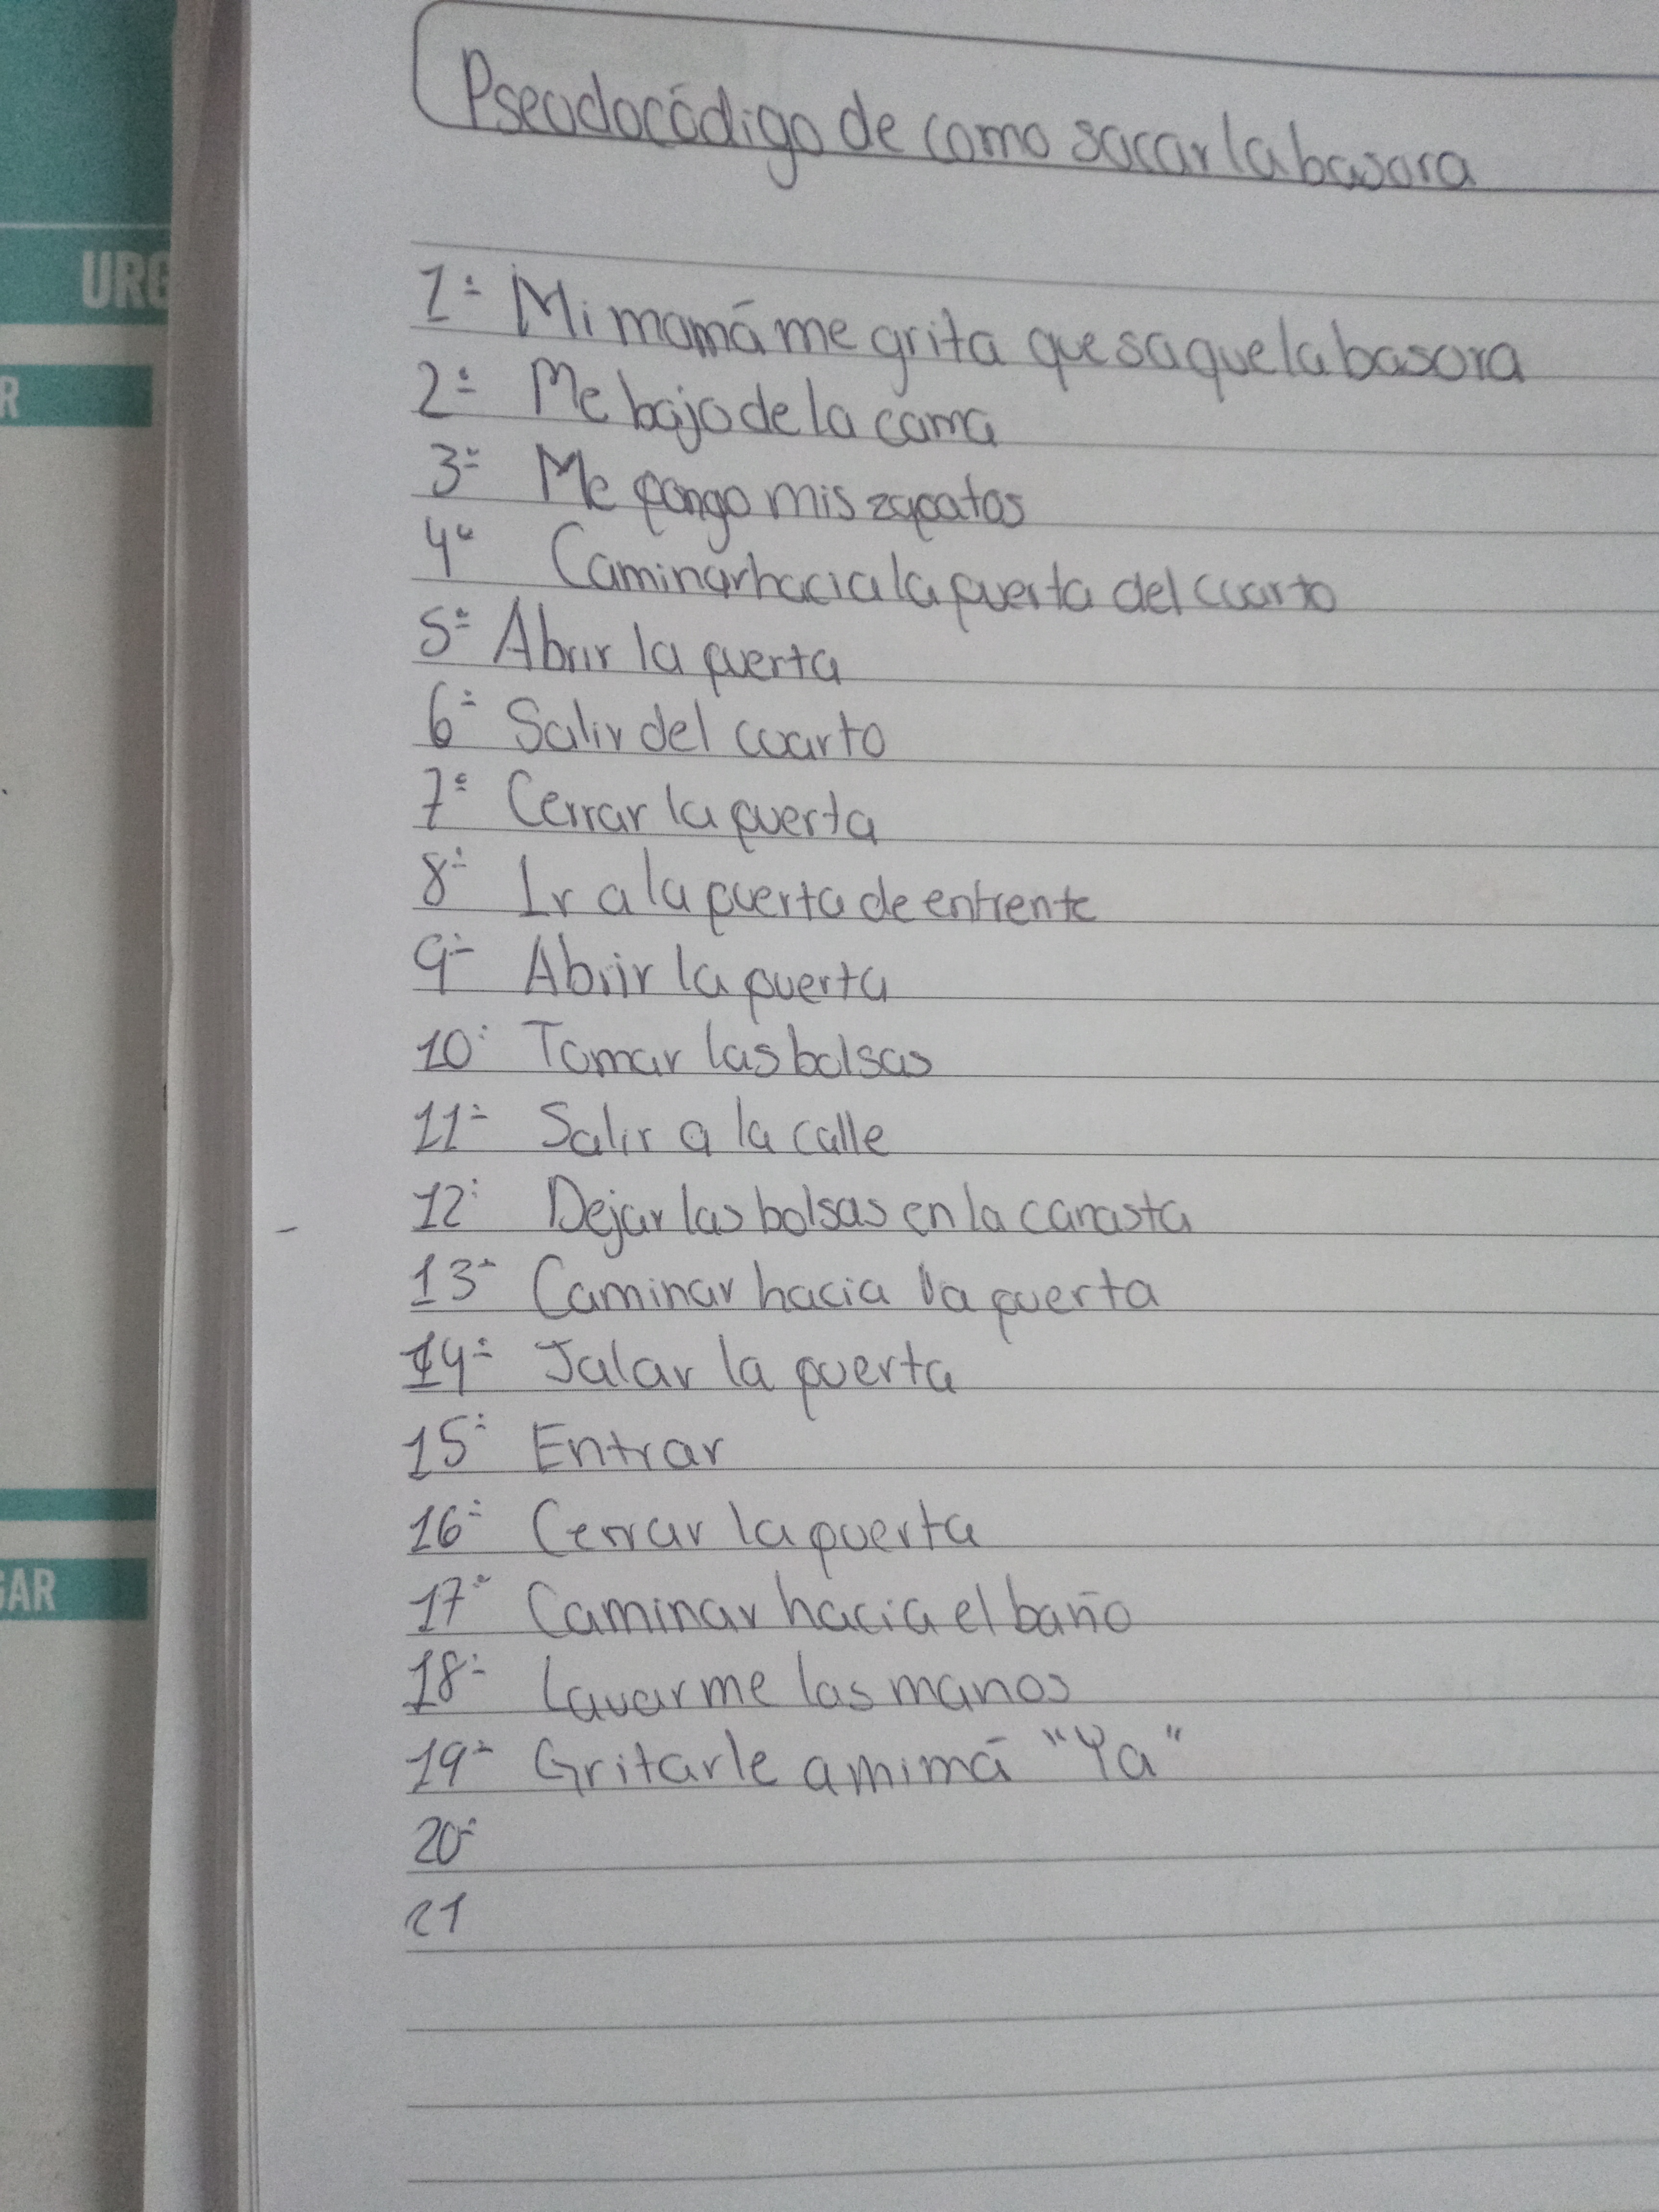 URG
R
GAR
Pseudocódigo de como sacar la basura
1.- Mi mamá me grita que saque la basura
2.- Me bajo de la cama
3.- Me pongo mis zapatos
4.- Caminar hacia la puerta del cuarto
5.- Abrir la puerta
6.- Salir del cuarto
7.- Cerrar la puerta
8.- Ir a la puerta de enfrente
9.- Abrir la puerta
10.- Tomar las bolsas
11.- Salir a la calle
12.- Dejar las bolsas en la canasta
13.- Caminar hacia la puerta
14.- Jalar la puerta
15.- Entrar
16.- Cerrar la puerta
17.- Caminar hacia el baño
18.- Lavarme las manos
19.- Gritarle a mi má "Ya"
20.-
21